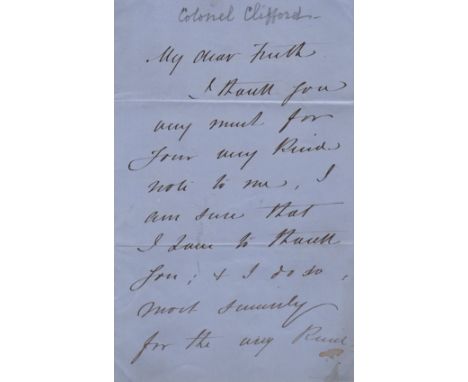 Colonel Clifford
My dear Frith
I thank you
very much for
your very kind
note to me, I
am sure that
I have to thank
you; & I do so,
most sincerely
for the very kind